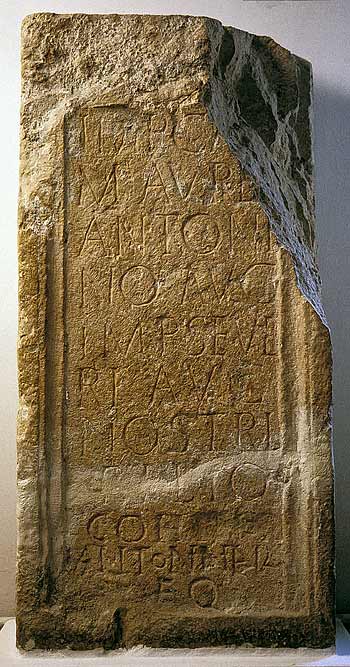 IMP C
M AVRE
ANTONI
NO AVG
IMP SEVE
RI AVG
NOSTRI
FILIO
COH
ANTONINIA
EQ